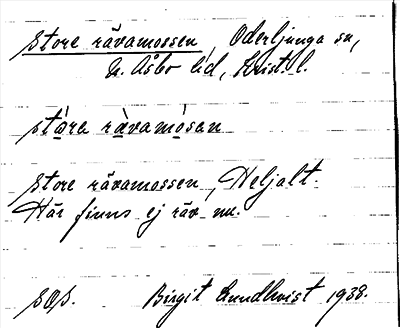 Store rävamossen, Oderljunga sn,
N. Åsbo hd, Krist. l.
stóra rävamósan
Store rävamossen, Heljalt.
Här finns ej räv nu.
SOS. Birgit Lundkvist 1938.